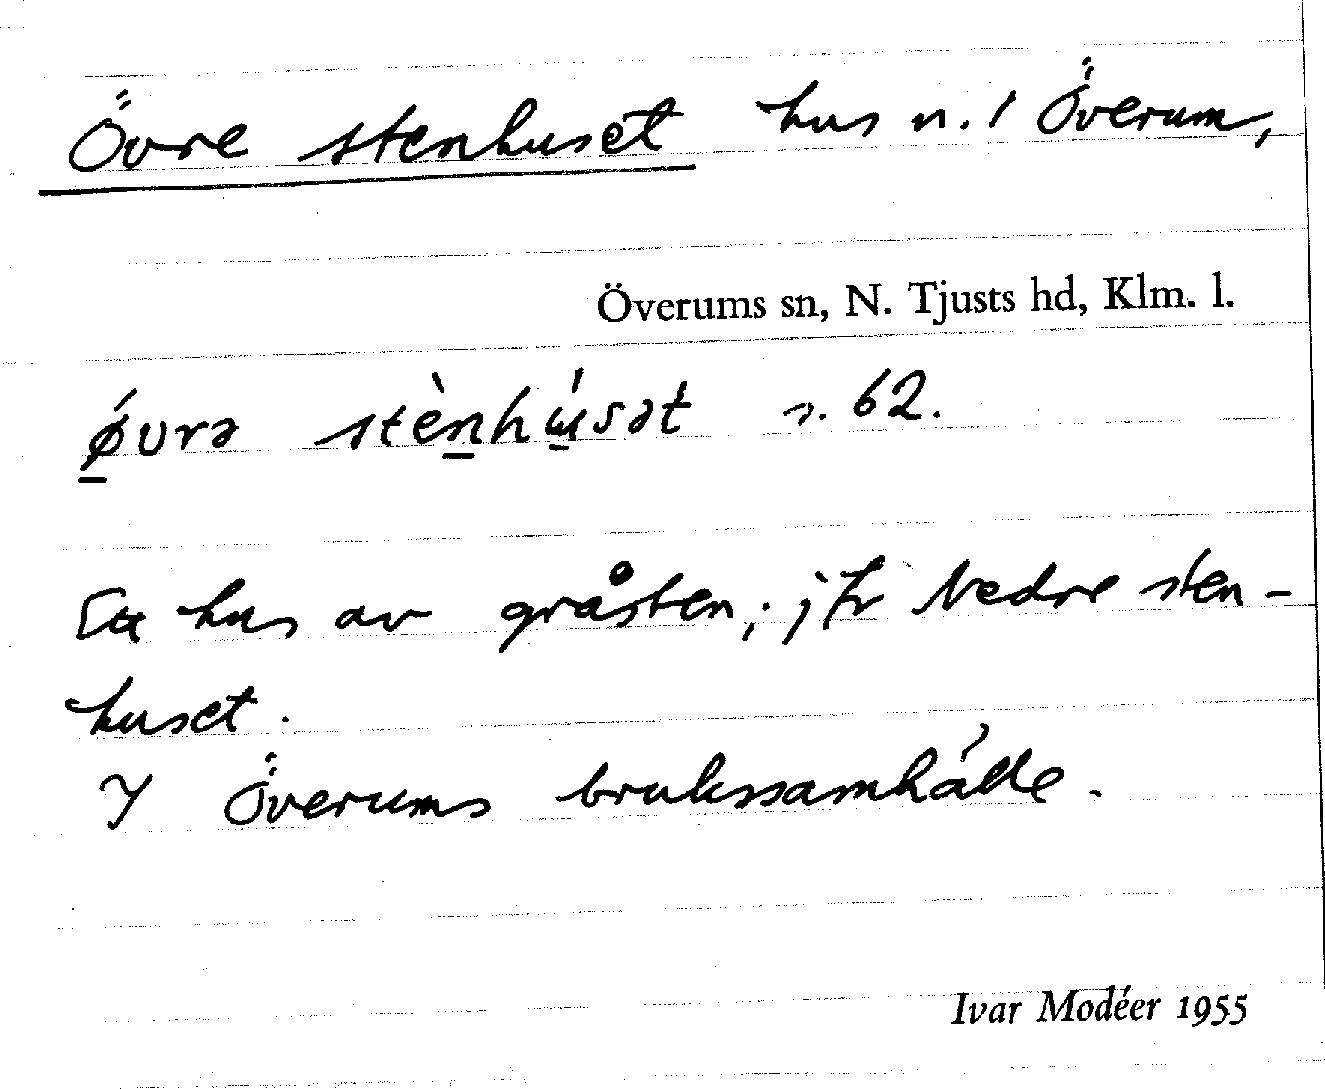 Övre stenhuset hus n. 1 Överum,
Överums sn, N. Tjusts hd, Klm. l.
ǿvrə stènhúsət s. 62.
Ett hus av gråsten; jfr Nedre sten-
huset.
I Överums brukssamhälle.
Ivar Modéer 1955